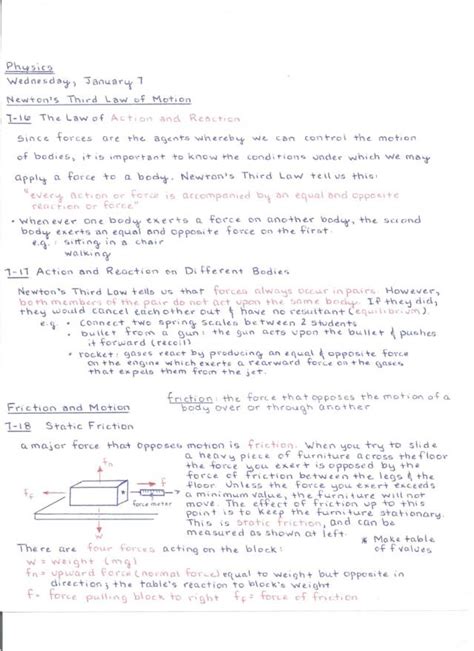 Physics
Wednesday, January 7
Newton's Third Law of Motion
7-16 The Law of Action and Reaction
Since forces are the agents whereby we can control the motion
of bodies, it is important to know the conditions under which we may
apply a force to a body. Newton's Third Law tell us this:
"every action or force is accompanied by an equal and opposite
reaction or force"
• Whenever one body exerts a force on another body, the second
body exerts an equal and opposite force on the first.
e.g.: sitting in a chair
walking
7-17 Action and Reaction on Different Bodies
Newton's Third Law tells us that forces always occur in pairs. However,
both members of the pair do not act upon the same body. If they did,
they would cancel each other out & have no resultant (equilibrium).
e.g. • connect two spring scales between 2 students
• bullet from a gun: the gun acts upon the bullet & pushes
it forward (recoil)
• rocket: gases react by producing an equal & opposite force
on the engine which exerts a rearward force on the gases
that expels them from the jet.
friction: the force that opposes the motion of a
body over or through another
Friction and Motion
7-18 Static Friction
a major force that opposes motion is friction. When you try to slide
a heavy piece of furniture across the floor
the force you exert is opposed by the
force of friction between the legs & the
floor. Unless the force you exert exceeds
a minimum value, the furniture will not
move. The effect of friction up to this
point is to keep the furniture stationary.
This is static friction, and can be
measured as shown at left.
* Make table
of f values
fn
ff
F
force meter
w
There are four forces acting on the block:
w = weight (mg)
fn = upward force (normal force) equal to weight but opposite in
direction; the table's reaction to block's weight
F = force pulling block to right ff = force of friction